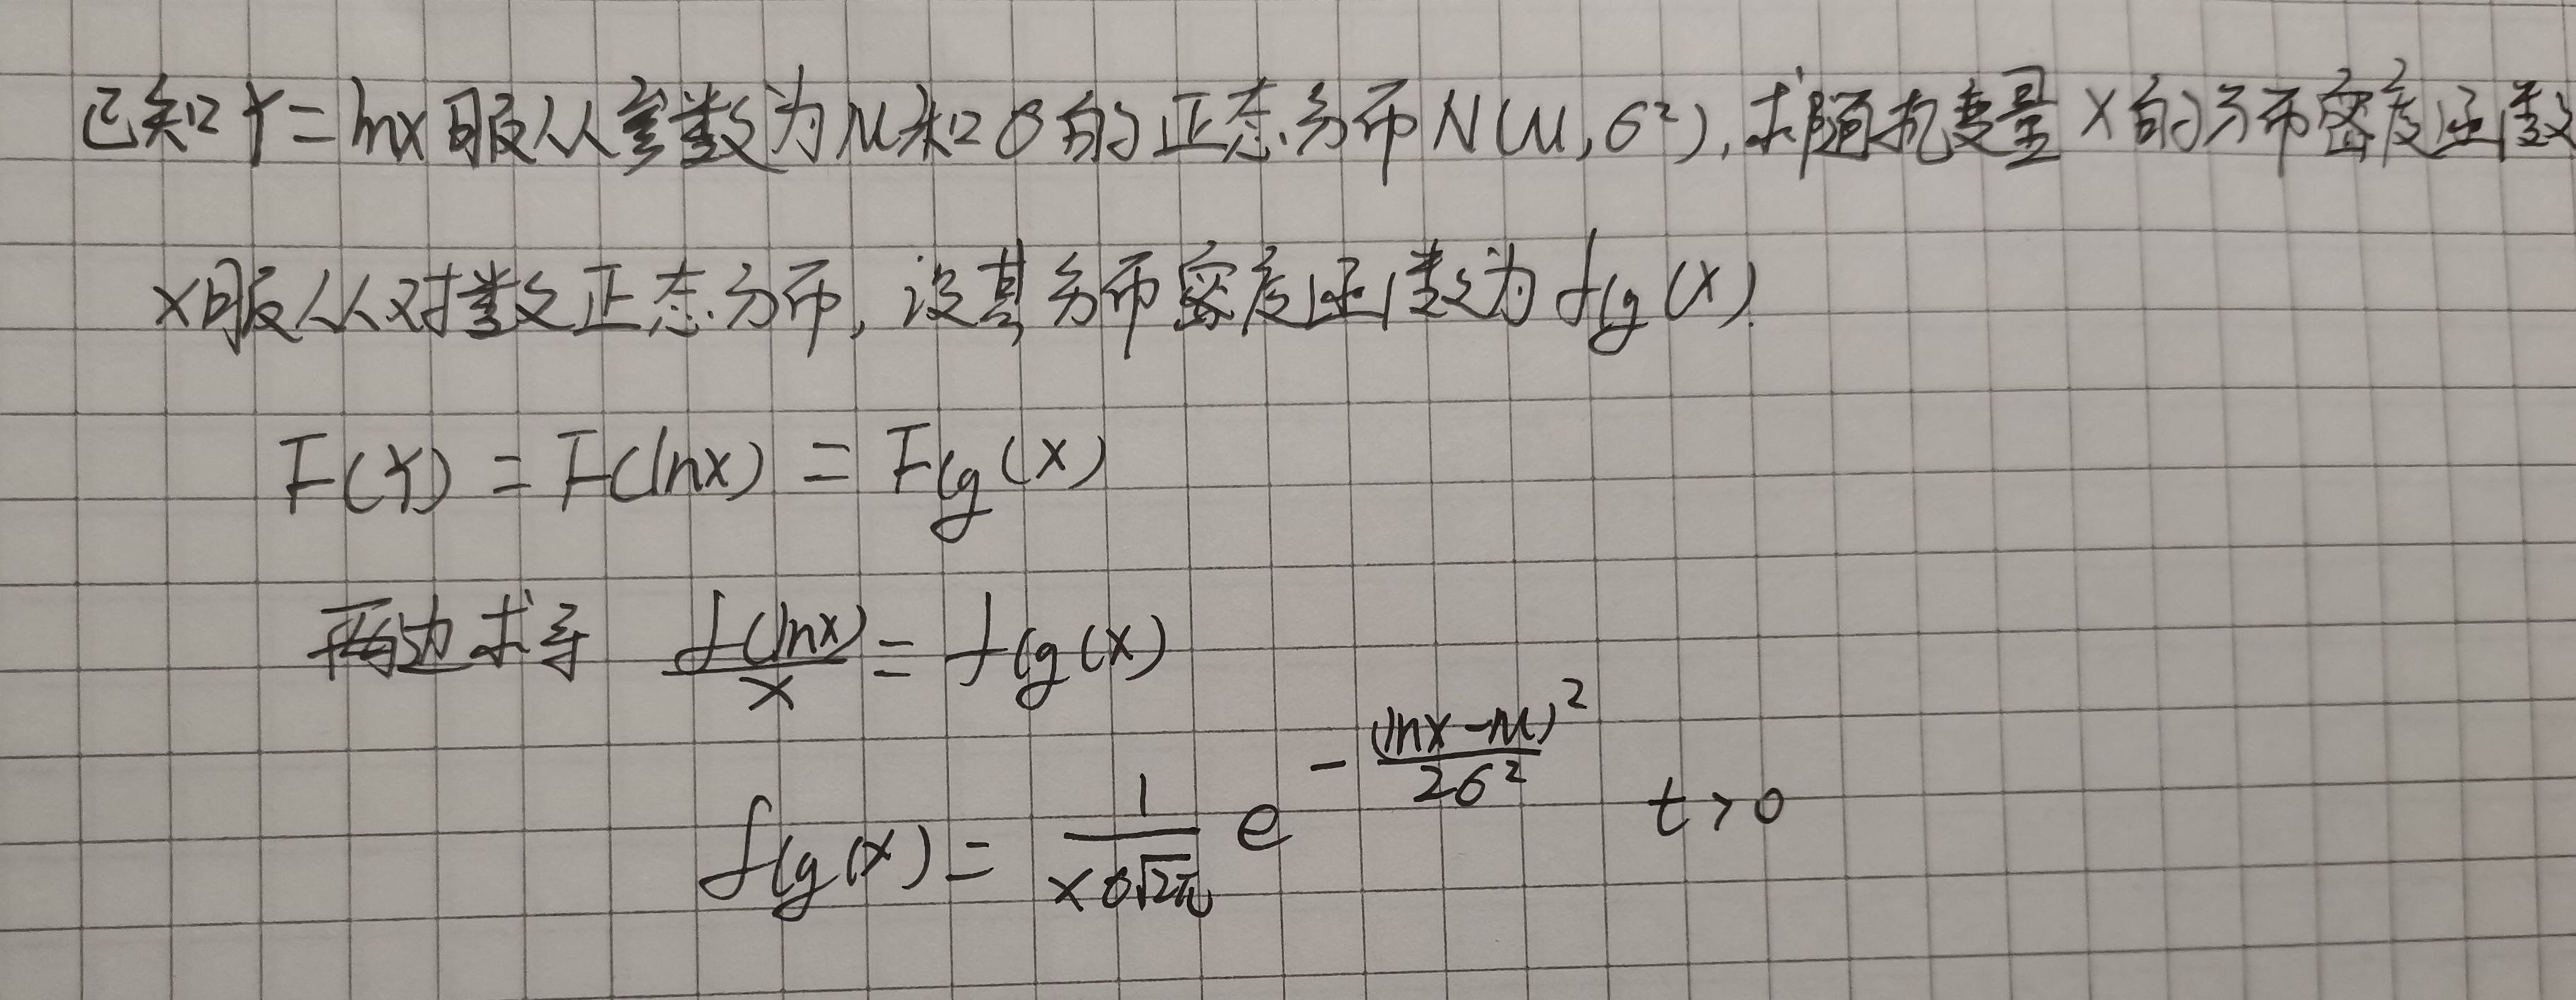 已知Y=lnx服从参数为μ和σ的正态分布N(μ,σ²),求随机变量X的分布密度函数
X服从对数正态分布,设其分布密度函数为flg(x).
F(Y)=F(lnx)=Flg(x)
两边求导 f(lnx)/x=flg(x)
flg(x)=1/(xσ√2π) e^(-(lnx-μ)²/2σ²) t>0